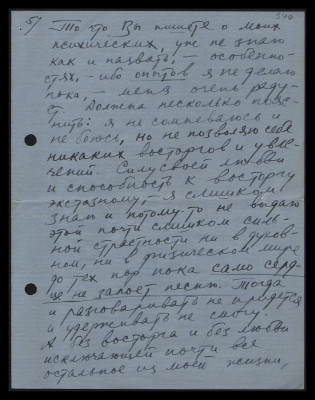 5) 340
То что Вы пишете о моих
психических, уж не знаю
как и назвать, — особенно-
стях, — ибо опытов я не делаю
пока, — меня очень раду-
ет. Должна несколько пояс-
нить: я не сомневаюсь и
не боюсь, но не позволяю себе
никаких восторгов и увле-
чений. Силу своей любви
и способность к восторгу
экстазному, — я слишком
знаю и потому-то не выдаю
этой почти слишком силь-
ной страстности ни в духов-
ном, ни в физическом мире
до тех пор пока само серд-
це не запоет песню. Тогда
и разговаривать не придется
и удерживать не смогу.
А без восторга и без любви
исключающей почти все
остальное из моей жизни,